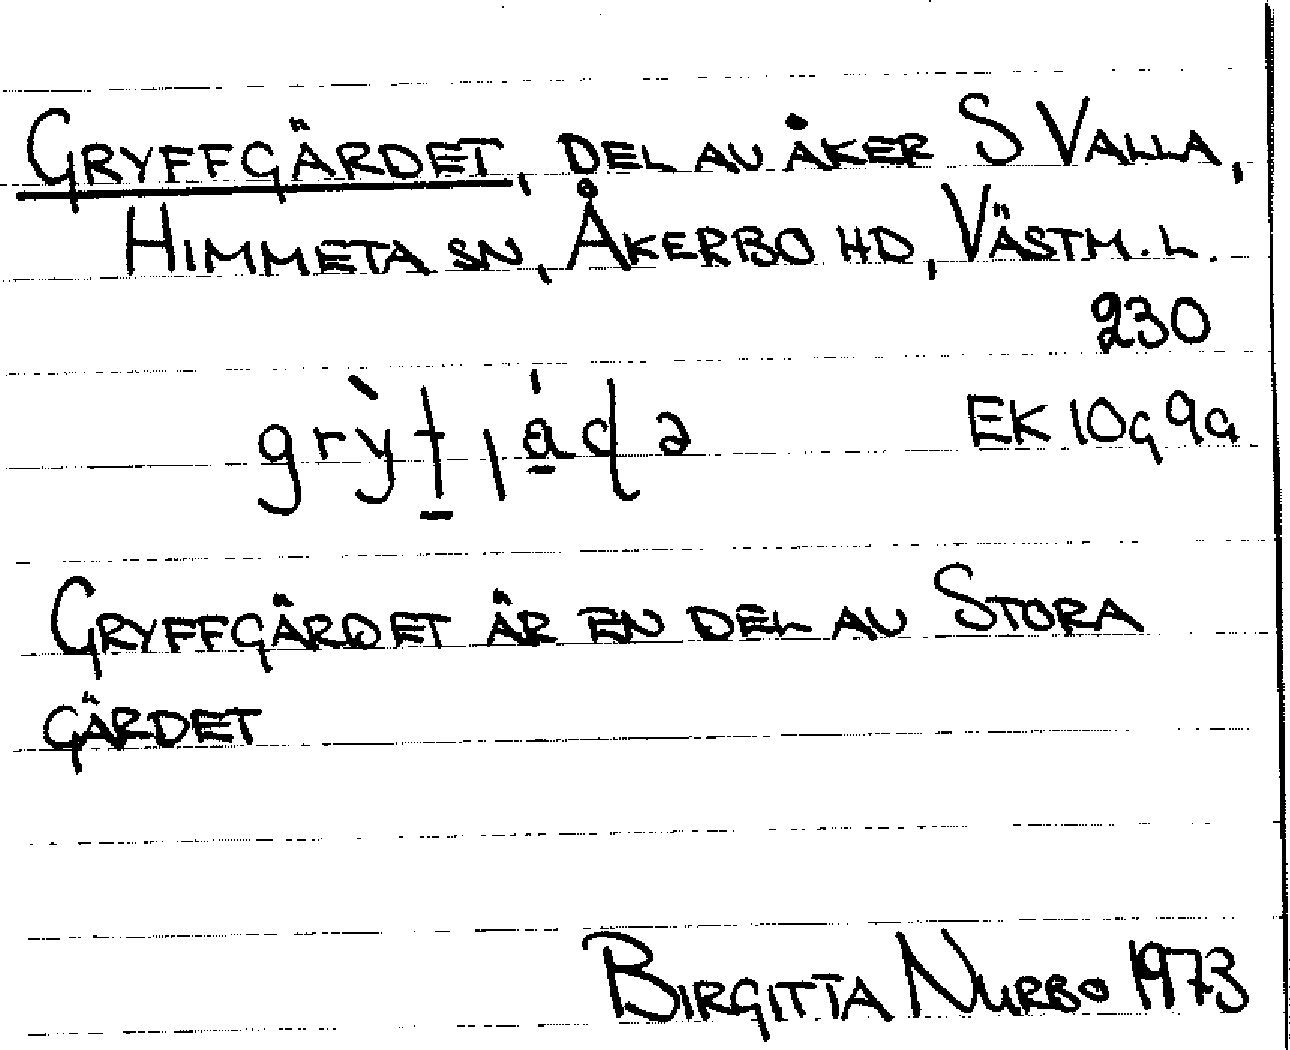 GRYFFGÄRDET, DEL AV ÅKER S VALLA,
HIMMETA SN, ÅKERBO HD, VÄSTM.L.
230
EK 10g 9a
GRYFFGÄRDET ÄR EN DEL AV STORA
GÄRDET
BIRGITTA NURBO 1973